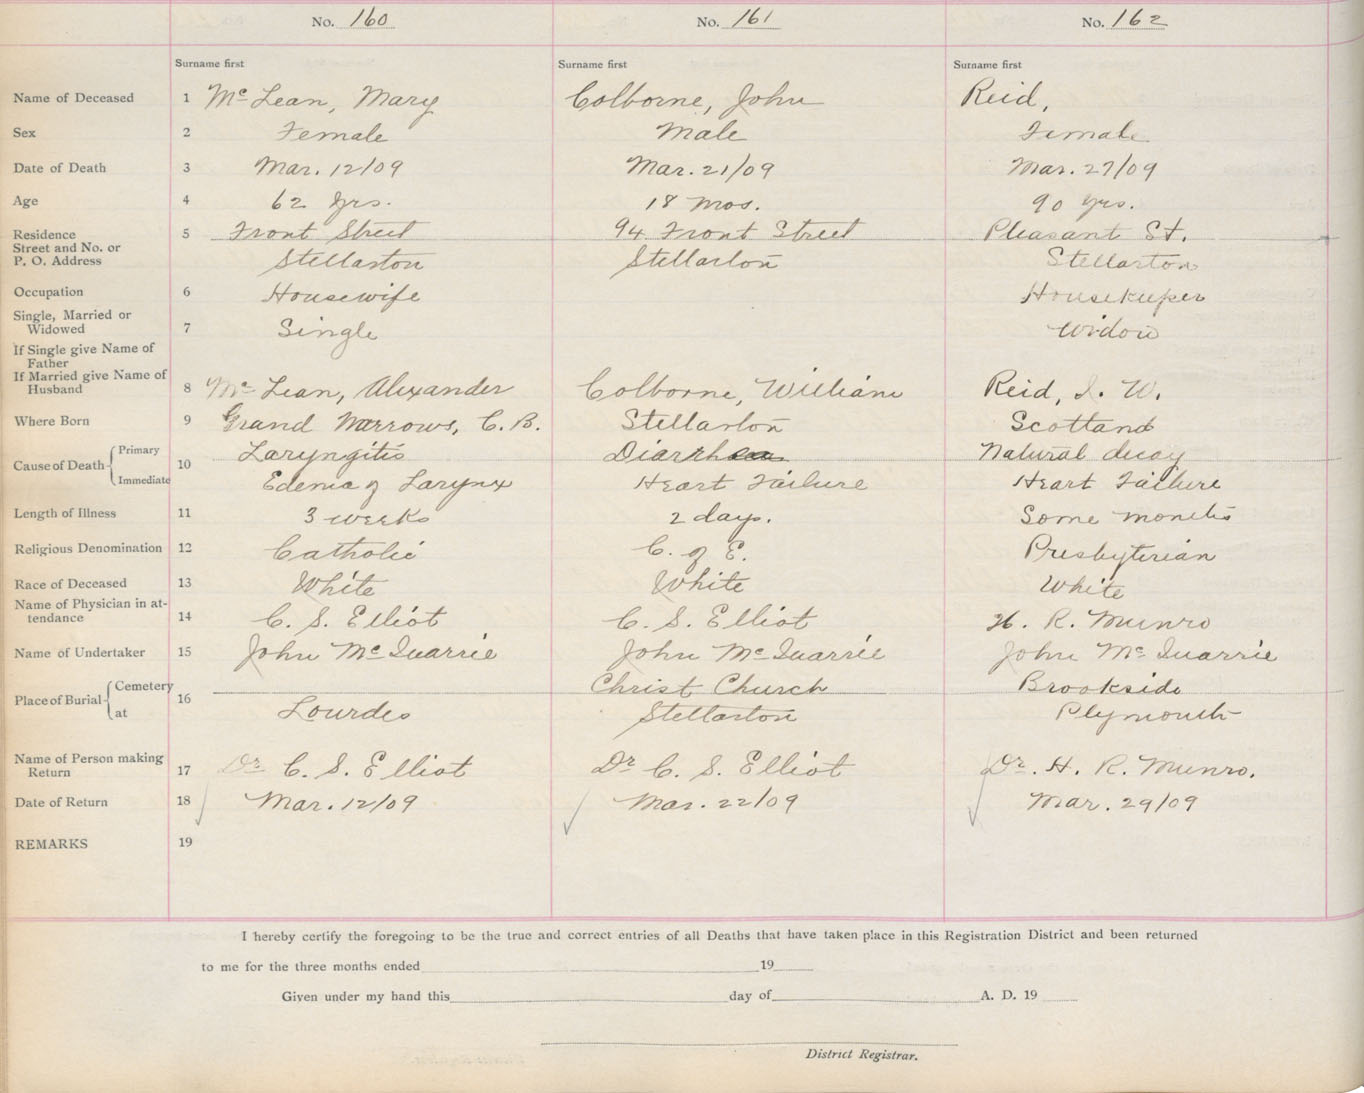 No. 160 No. 161 No. 162
Surname first Surname first Surname first
Name of Deceased 1 Mc Lean, Mary Colborne, John Reid,
Sex 2 Female Male Female
Date of Death 3 Mar. 12/09 Mar. 21/09 Mar. 27/09
Age 4 62 yrs. 18 mos. 90 yrs.
Residence 5 Front Street 94 Front Street Pleasant St.
Street and No. or
P. O. Address Stellarton Stellarton Stellarton
Occupation 6 Housewife Housekeeper
Single, Married or
Widowed 7 Single Widow
If Single give Name of
Father
If Married give Name of
Husband 8 Mc Lean, Alexander Colborne, William Reid, J. W.
Where Born 9 Grand Narrows, C. B. Stellarton Scotland
Cause of Death 10 Primary Laryngitis Diarrhoea Natural decay
Immediate Edema of Larynx Heart Failure Heart Failure
Length of Illness 11 3 weeks 2 days. Some months
Religious Denomination 12 Catholic C. of E. Presbyterian
Race of Deceased 13 White White White
Name of Physician in at-
tendance 14 C. S. Elliot C. S. Elliot H. R. Munro
Name of Undertaker 15 John McQuarrie John McQuarrie John McQuarrie
Place of Burial 16 Cemetery Christ Church Brookside
at Lourdes Stellarton Plymouth
Name of Person making
Return 17 Dr C. S. Elliot Dr C. S. Elliot Dr. H. R. Munro.
Date of Return 18 Mar. 12/09 Mar. 22/09 Mar. 29/09
REMARKS 19
I hereby certify the foregoing to be the true and correct entries of all Deaths that have taken place in this Registration District and been returned
to me for the three months ended 19
Given under my hand this day of A. D. 19
District Registrar.